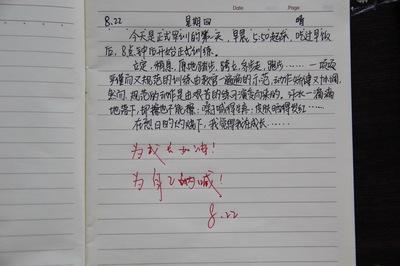 Date
8.22 星期四 晴
今天是正式军训的第一天，早晨5:50起床，吃过早饭
后，8点钟后开始正式训练。
立定，稍息，原地踏步，跨立，齐步走，跑步……一项项
严谨而又规范的训练由教官一遍遍的示范，动作矫健又协调，
然而，规范的动作是由艰苦的练习演变而来的。汗水一滴滴
地落下，脚撑也不能撑；嗓子喊得生疼，皮肤晒得发红……
在烈日的灼烧下，我觉得我在成长……
为成长加油！
为自己呐喊！
8.22